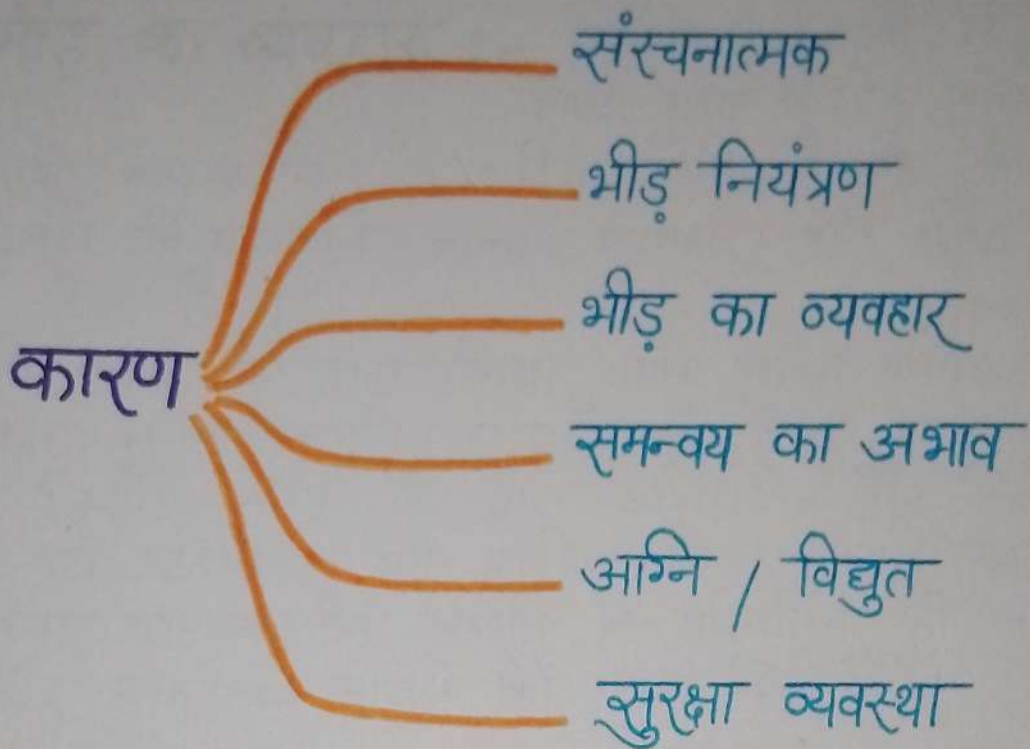 संरचनात्मक
भीड़ नियंत्रण
भीड़ का व्यवहार
कारण
समन्वय का अभाव
अग्नि / विद्युत
सुरक्षा व्यवस्था